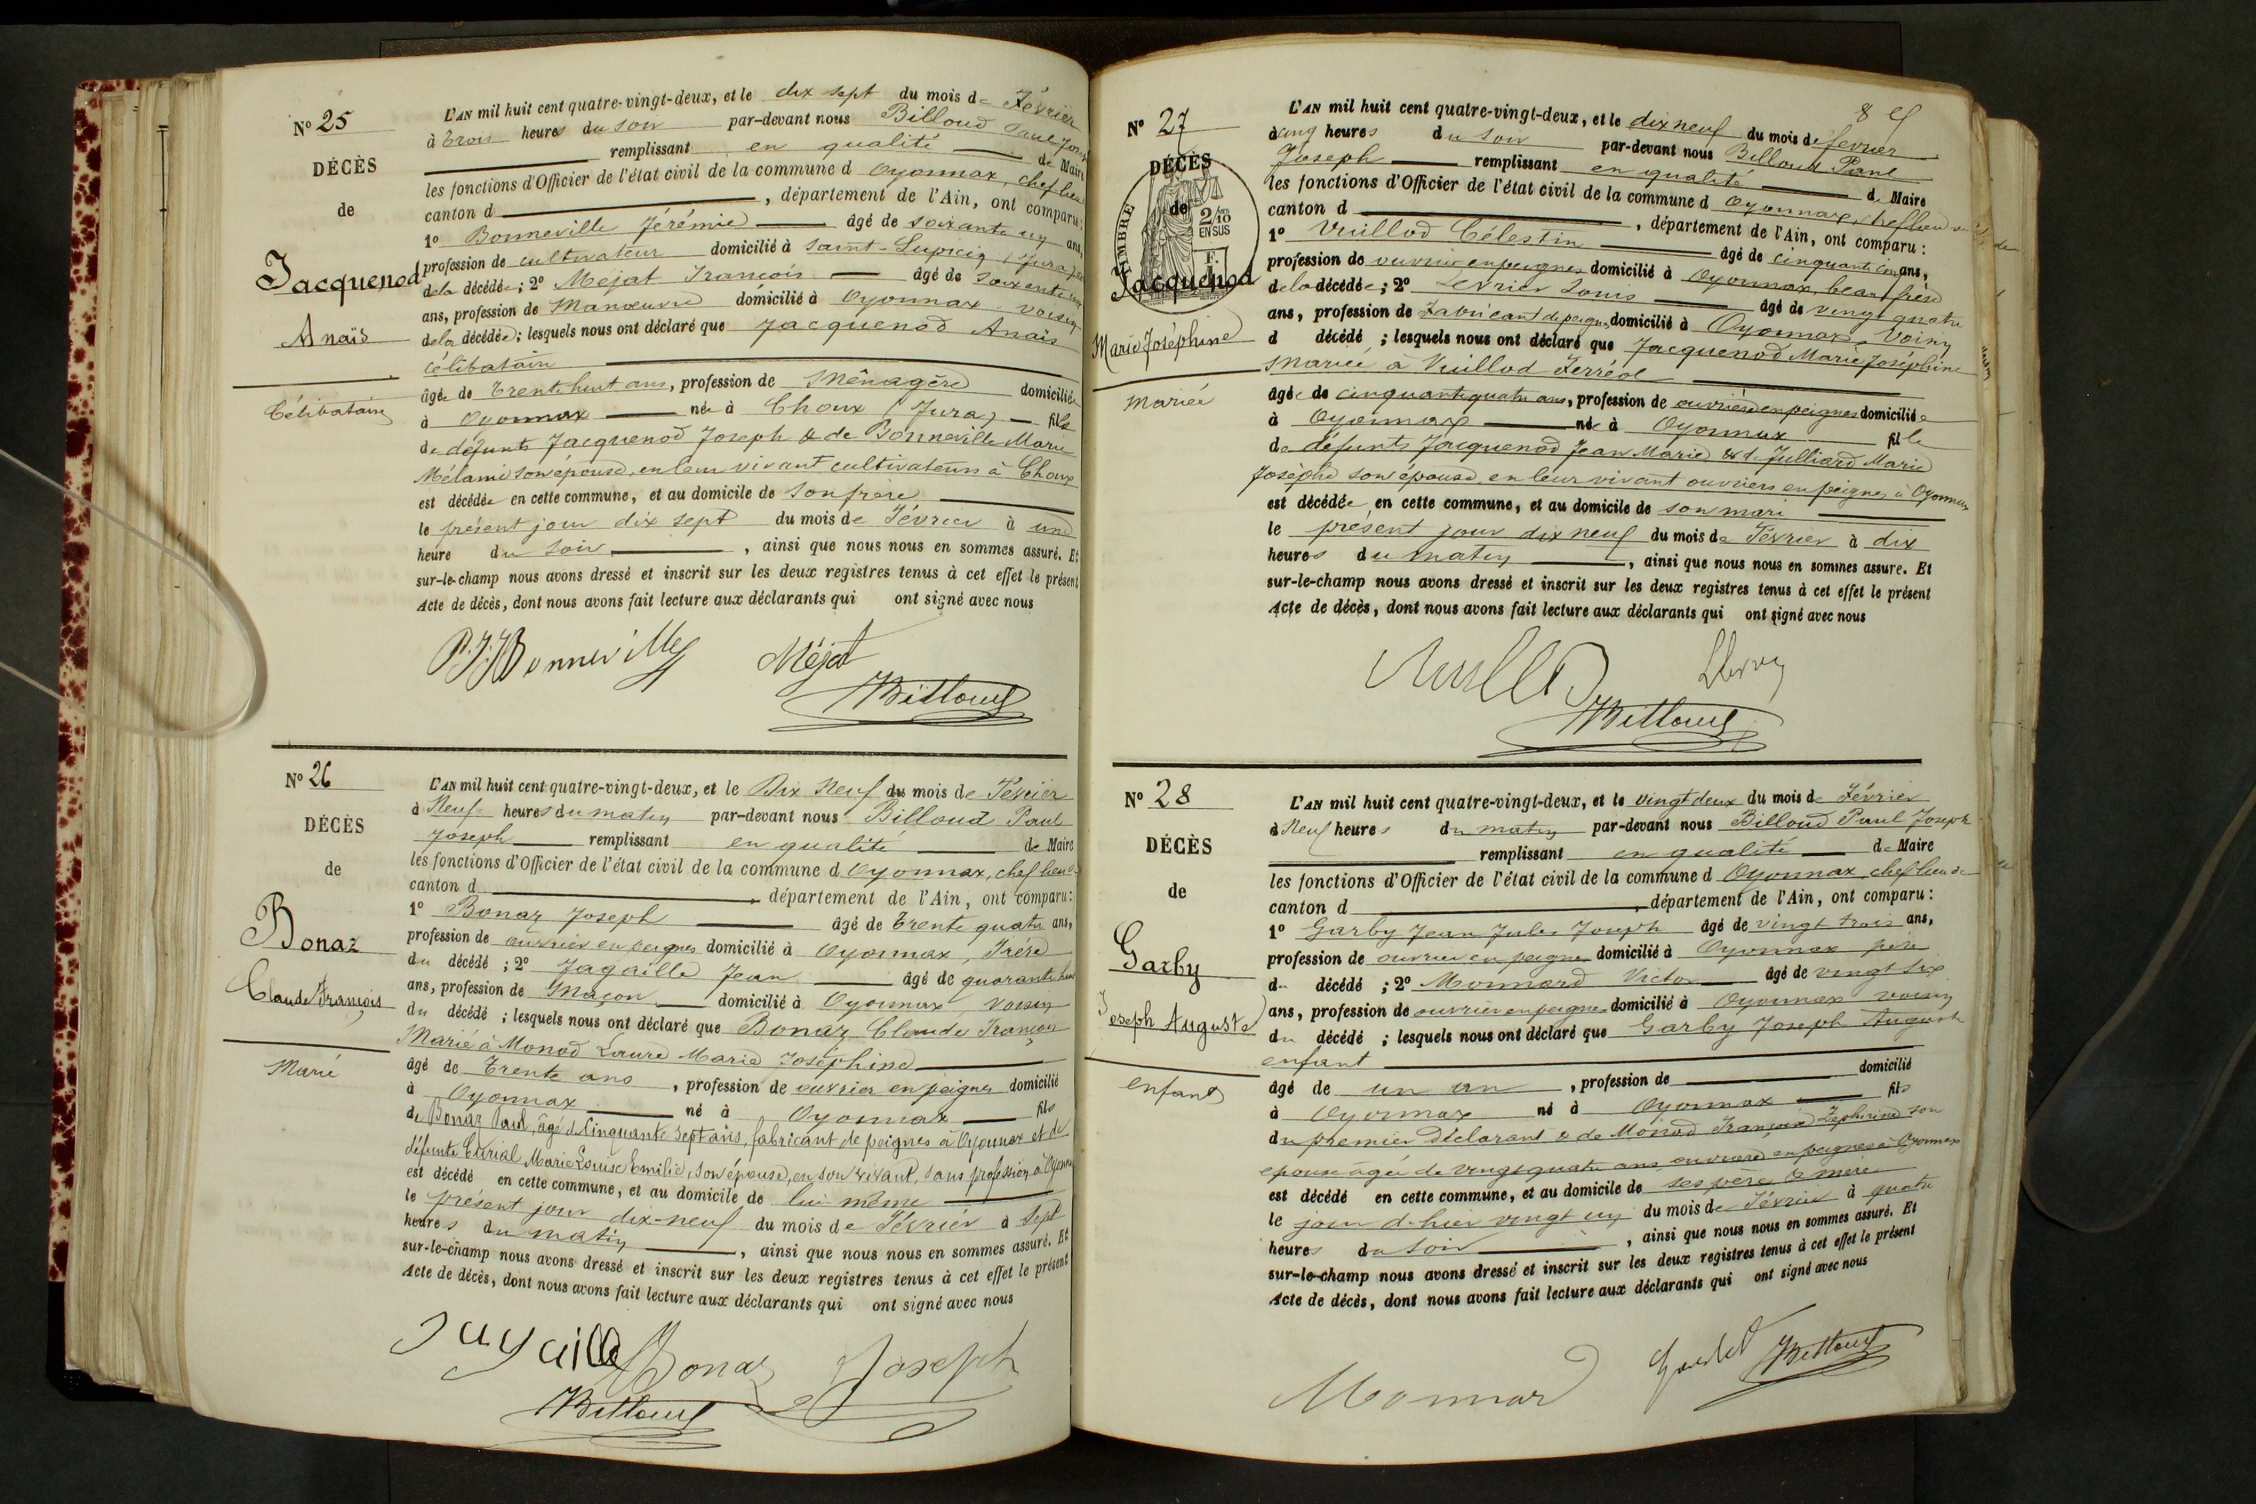 N° 25
DÉCÈS
de
Jacquenod
Anaïs
Célibataire
L'AN mil huit cent quatre-vingt-deux, et le dix sept du mois de Février
à trois heures du soir par-devant nous Billoud Paul Joseph
remplissant en qualité de Maire
les fonctions d'Officier de l'état civil de la commune d Oyonnax, chef lieu
canton d , département de l'Ain, ont comparu:
1° Bonneville Jérémie âgé de soixante un ans,
profession de cultivateur domicilié à Saint-Lupicin (Jura)
de la décédée; 2° Méjat François âgé de soixante
ans, profession de Manœuvre domicilié à Oyonnax voisin
de la décédée; lesquels nous ont déclaré que Jacquenod Anaïs
célibataire
âgée de trente huit ans, profession de Ménagère domiciliée
à Oyonnax née à Choux (Jura) fille
de défunts Jacquenod Joseph & de Bonneville Marie
Mélanie son épouse, en leur vivant cultivateurs à Choux
est décédée en cette commune, et au domicile de son frère
le présent jour dix sept du mois de Février à une
heure du soir , ainsi que nous nous en sommes assuré. Et
sur-le-champ nous avons dressé et inscrit sur les deux registres tenus à cet effet le présent
Acte de décès, dont nous avons fait lecture aux déclarants qui ont signé avec nous
Bonneville Méjat
Billoud
N° 26
DÉCÈS
de
Bonaz
Claude François
Marié
L'AN mil huit cent quatre-vingt-deux, et le Dix Neuf du mois de Février
à Neuf heures du matin par-devant nous Billoud Paul
Joseph remplissant en qualité de Maire
les fonctions d'Officier de l'état civil de la commune d Oyonnax, chef lieu de
canton d , département de l'Ain, ont comparu:
1° Bonaz Joseph âgé de trente quatre ans,
profession de ouvrier en peignes domicilié à Oyonnax, Frère
du décédé; 2° Jagaille Jean âgé de quarante huit
ans, profession de Maçon domicilié à Oyonnax voisin
du décédé; lesquels nous ont déclaré que Bonaz Claude François
Marié à Monod Laure Marie Joséphine
âgé de trente ans , profession de ouvrier en peignes domicilié
à Oyonnax né à Oyonnax fils
de Bonaz Paul, âgé de Cinquante sept ans, fabricant de peignes à Oyonnax et de
défunte Carial Marie Louise Emilie, son épouse, en son vivant, sans profession, à Oyonnax
est décédé en cette commune, et au domicile de lui même
le présent jour dix-neuf du mois de Février à sept
heures du matin , ainsi que nous nous en sommes assuré. Et
sur-le-champ nous avons dressé et inscrit sur les deux registres tenus à cet effet le présent
Acte de décès, dont nous avons fait lecture aux déclarants qui ont signé avec nous
Jugaille Bonaz Joseph
Billoud
N° 27
DÉCÈS
de
TIMBRE
2/10
EN SUS
F.
Jacquenod
Marie Joséphine
Mariée
L'AN mil huit cent quatre-vingt-deux, et le dix neuf du mois de février
à cinq heures du soir par-devant nous Billoud Paul
Joseph remplissant en qualité de Maire
les fonctions d'Officier de l'état civil de la commune d Oyonnax, chef lieu
canton d , département de l'Ain, ont comparu:
1° Vuillod Célestin âgé de cinquante cinq ans,
profession de ouvrier en peignes domicilié à Oyonnax, beau frère
de la décédée; 2° Levrier Louis âgé de vingt quatre
ans, profession de Fabricant de peignes domicilié à Oyonnax, Voisin
d décédé; lesquels nous ont déclaré que Jacquenod Marie Joséphine
Mariée à Vuillod Ferréol
âgée de cinquante quatre ans, profession de ouvrière en peignes domiciliée
à Oyonnax née à Oyonnax fille
de défunts Jacquenod Jean Marie & de Julliard Marie
Josèphe son épouse en leur vivant ouvriers en peignes à Oyonnax
est décédée en cette commune, et au domicile de son mari
le présent jour dix neuf du mois de Février à dix
heures du matin , ainsi que nous nous en sommes assuré. Et
sur-le-champ nous avons dressé et inscrit sur les deux registres tenus à cet effet le présent
Acte de décès, dont nous avons fait lecture aux déclarants qui ont signé avec nous
Billoud
N° 28
DÉCÈS
de
Garby
Joseph Auguste
enfant
L'AN mil huit cent quatre-vingt-deux, et le vingt deux du mois de Février
à Neuf heures du matin par-devant nous Billoud Paul Joseph
remplissant en qualité de Maire
les fonctions d'Officier de l'état civil de la commune d Oyonnax chef lieu de
canton d , département de l'Ain, ont comparu:
1° Garby Jean Jules Joseph âgé de vingt trois ans,
profession de ouvrier en peignes domicilié à Oyonnax père
du décédé; 2° Monnard Victor âgé de vingt six
ans, profession de ouvrier en peignes domicilié à Oyonnax voisin
du décédé; lesquels nous ont déclaré que Garby Joseph Auguste
enfant
âgé de un an , profession de domicilié
à Oyonnax né à Oyonnax fils
du premier Déclarant & de Monod Françoise Zéphirine son
épouse âgée de vingt quatre ans ouvrière en peignes à Oyonnax
est décédé en cette commune, et au domicile de ses père & mère
le jour d'hier vingt un du mois de Février à quatre
heures du soir , ainsi que nous nous en sommes assuré. Et
sur-le-champ nous avons dressé et inscrit sur les deux registres tenus à cet effet le présent
Acte de décès, dont nous avons fait lecture aux déclarants qui ont signé avec nous
Monnard Billoud